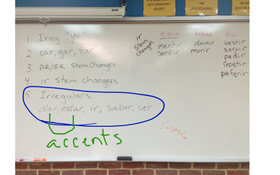 1 Irreg "Yo"
2 car, gar, zar
3 AR/ER Stem Changers
4 ir stem changers
5 Irregulars
dar, estar, ir, saber, ser
accents
ir
stem
changers
mentir
sentir
dormir
morir
vestir
servir
pedir
repetir
preferir